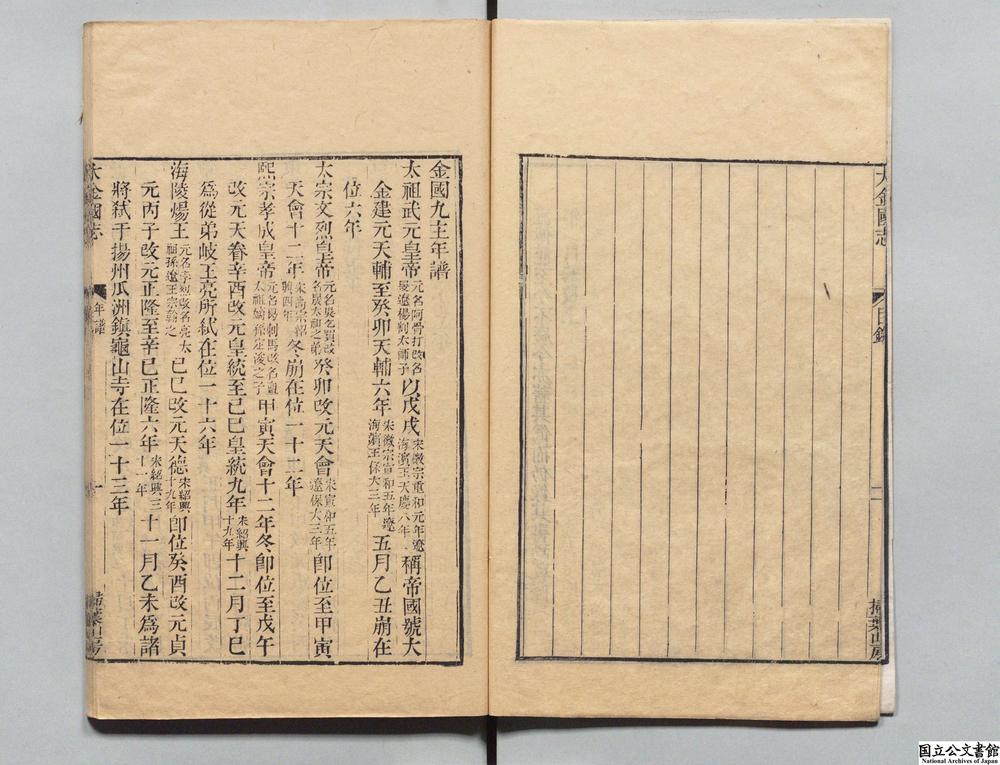 大金國志
目錄
二
掃葉山房
金國九主年譜
太祖武元皇帝元名阿骨打改名旻遼楊割太師子以戊戌宋徽宗重和元年遼海濱王天慶八年稱帝國號大
金建元天輔至癸卯天輔六年宋徽宗宣和五年遼海濱王保大三年五月乙丑崩在
位六年
太宗文烈皇帝元名吳乞買改名晟太祖之弟癸卯改元天會宋宣和五年遼保大三年即位至甲寅
天會十二年宋高宗紹興四年冬崩在位一十二年
熙宗孝成皇帝元名曷剌馬改名亶太祖嫡孫定浚之子甲寅天會十二年冬即位至戊午
改元天眷辛酉改元皇統至己巳皇統九年宋紹興十九年十二月丁巳
為從弟岐王亮所弑在位一十六年
海陵煬王元名孛烈改名亮太祖孫遼王宗幹之己巳改元天德宋紹興十九年即位癸酉改元貞
元丙子改元正隆至辛巳正隆六年宋紹興三十一年十一月乙未為諸
將弑于揚州瓜洲鎮龜山寺在位一十三年
大金國志
年譜
一
掃葉山房
国立公文書館
National Archives of Japan